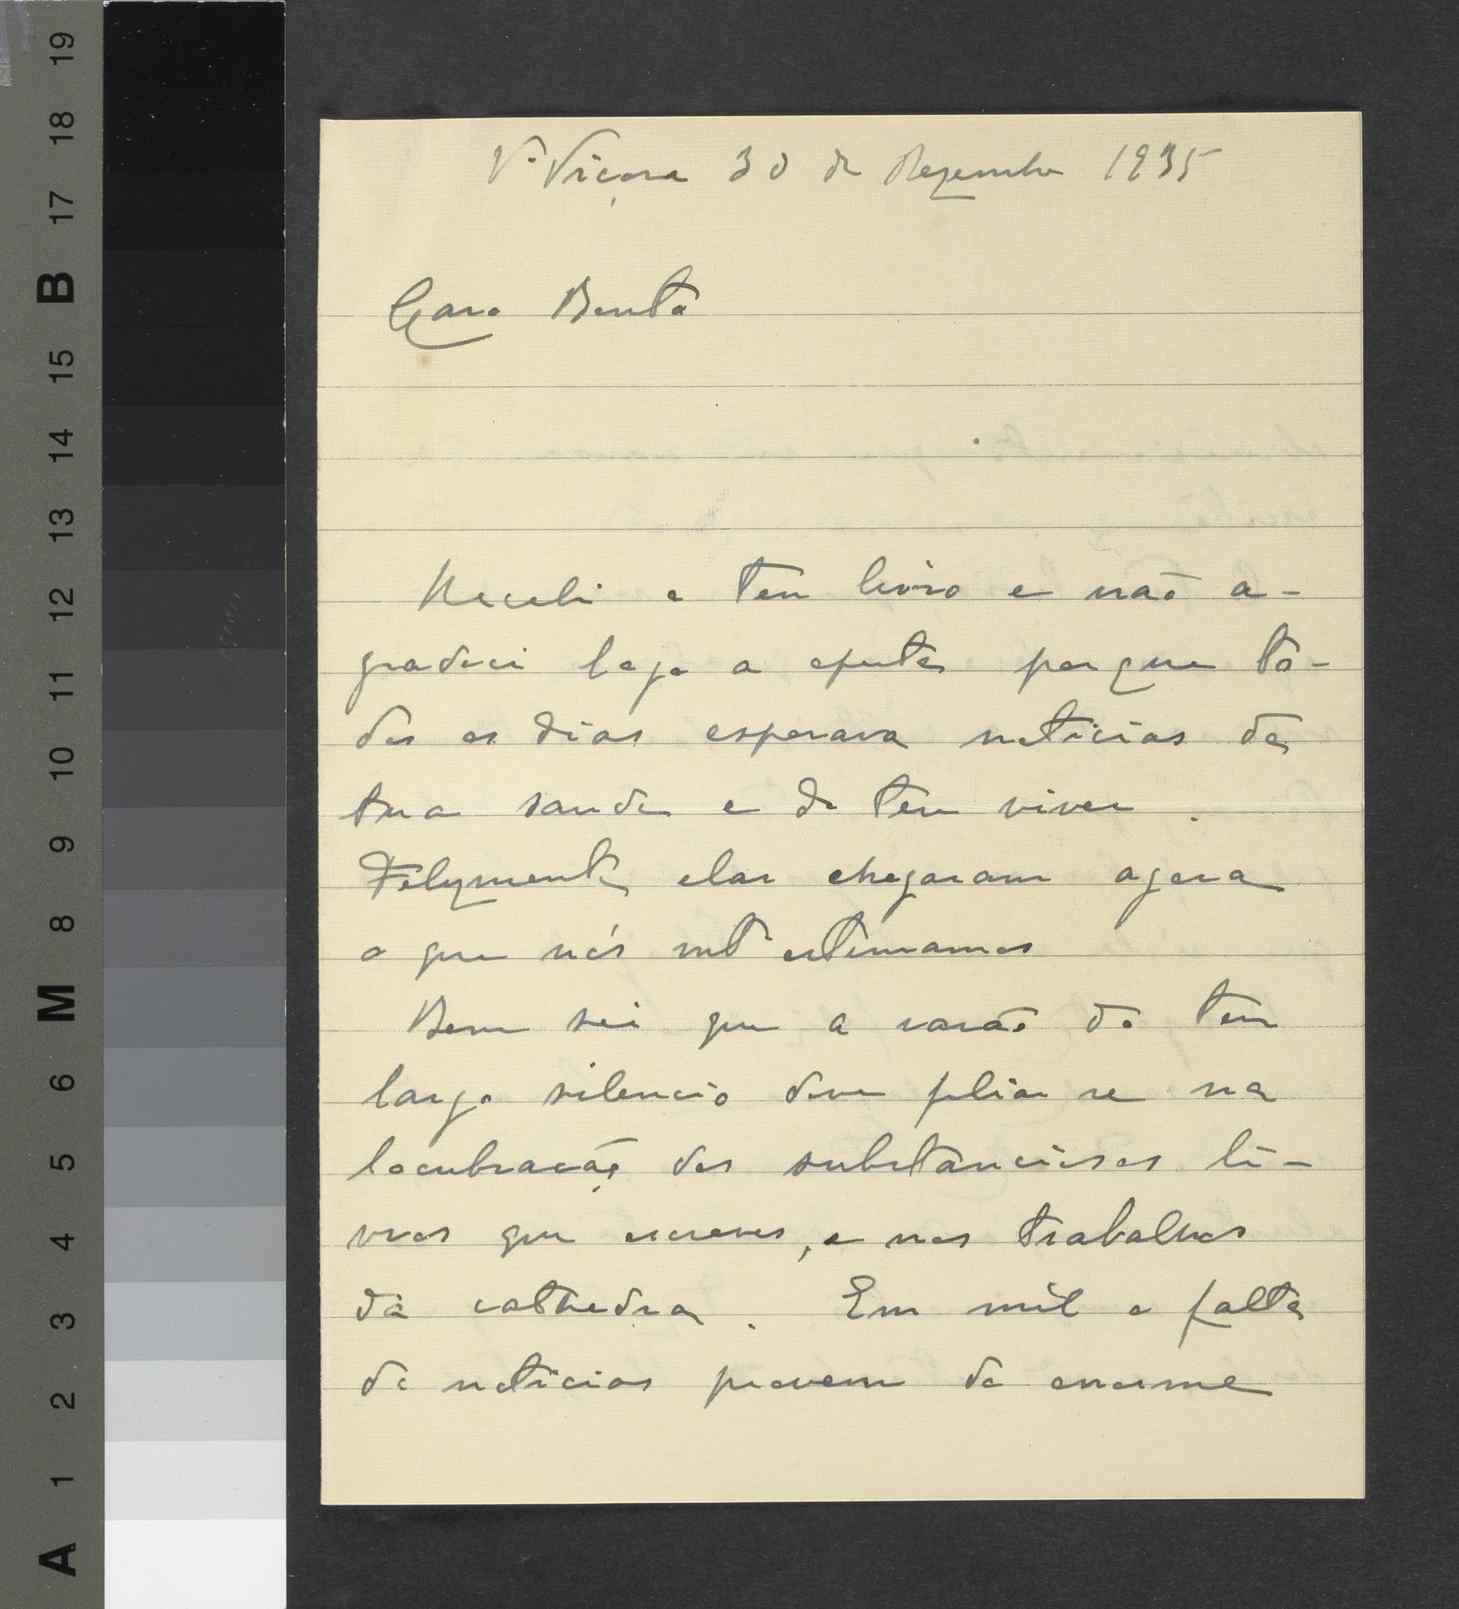 19
18
17
B
15
14
13
12
11
10
9
8
M
6
5
4
3
2
1
A
Vª Viçosa 30 de Dezembro 1935
Caro Bento
Recebi o teu livro e não a-
gradeci logo a oferta porque to-
dos os dias esperava noticias da
tua saude e do teu viver.
Felizmente elas chegaram agora
o que nós mtº estimamos
Bem sei que a rasão do teu
largo silencio deve filiar se na
locubração dos substanciosos li-
vros que escreves, e nos trabalhos
da cathedra. Em mil a falta
de noticias provem da enorme